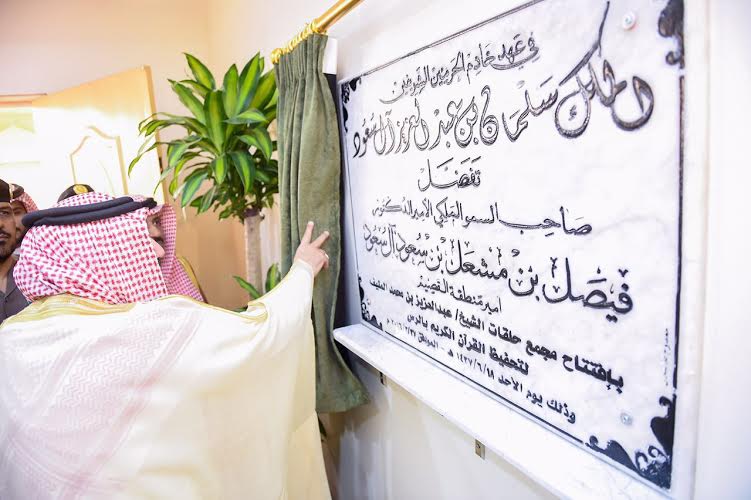 في عهد خادم الحرمين الشريفين
الملك سلمان بن عبد العزيز آل سعود
تفضل
صاحب السمو الملكي الأمير الدكتور
فيصل بن مشعل بن سعود آل سعود
أمير منطقة القصيم
بإفتتاح مجمع حلقات الشيخ/ عبدالعزيز بن محمد
لتحفيظ القرآن الكريم بالرس
وذلك يوم الأحد ١٤٣٧/٦/١٨ هـ - الموافق